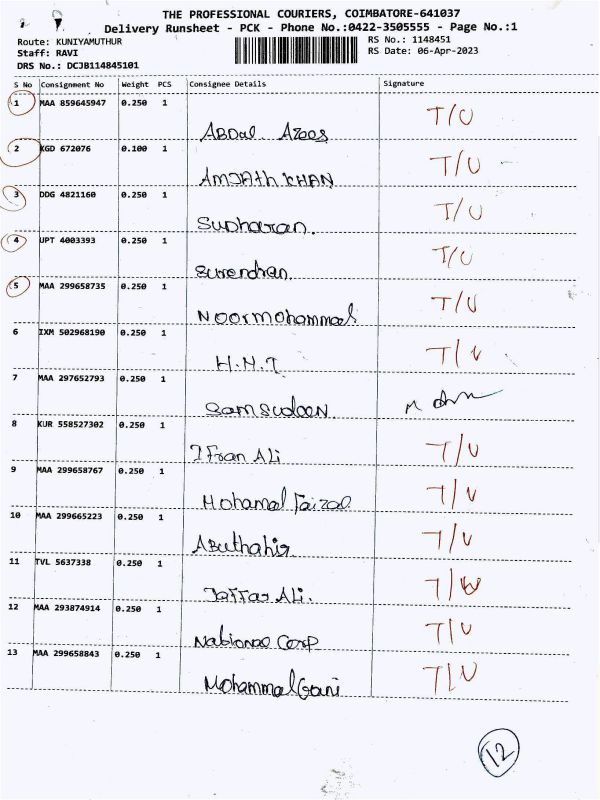 THE PROFESSIONAL COURIERS, COIMBATORE-641037
Delivery Runsheet - PCK - Phone No.:0422-3505555 - Page No.:1
Route: KUNIYAMUTHUR RS No.: 1148451
Staff: RAVI RS Date: 06-Apr-2023
DRS No.: DCJB114845101
S No Consignment No Weight PCS Consignee Details Signature
1 MAA 859645947 0.250 1 T/U
ABDal. Azees
2 KGD 672076 0.100 1 T/U
AMJAth KHAN
3 DDG 4821160 0.250 1 T/U
Sudharan.
4 UPT 4003393 0.250 1 T/U
Surendran.
5 MAA 299658735 0.250 1 T/U
Noormohammed
6 IXM 502968190 0.250 1 T/U
H.N.T
7 MAA 297652793 0.250 1
Samsudeen
8 KUR 558527302 0.250 1 T/U
Ifran Ali
9 MAA 299658767 0.250 1 T/U
Mohamad Faizal
10 MAA 299665223 0.250 1 T/U
Abuthahir
11 TVL 5637338 0.250 1 T/U
Jaffar Ali.
12 MAA 293874914 0.250 1 T/U
National Corp
13 MAA 299658843 0.250 1 T/U
Mohammad Gani
12